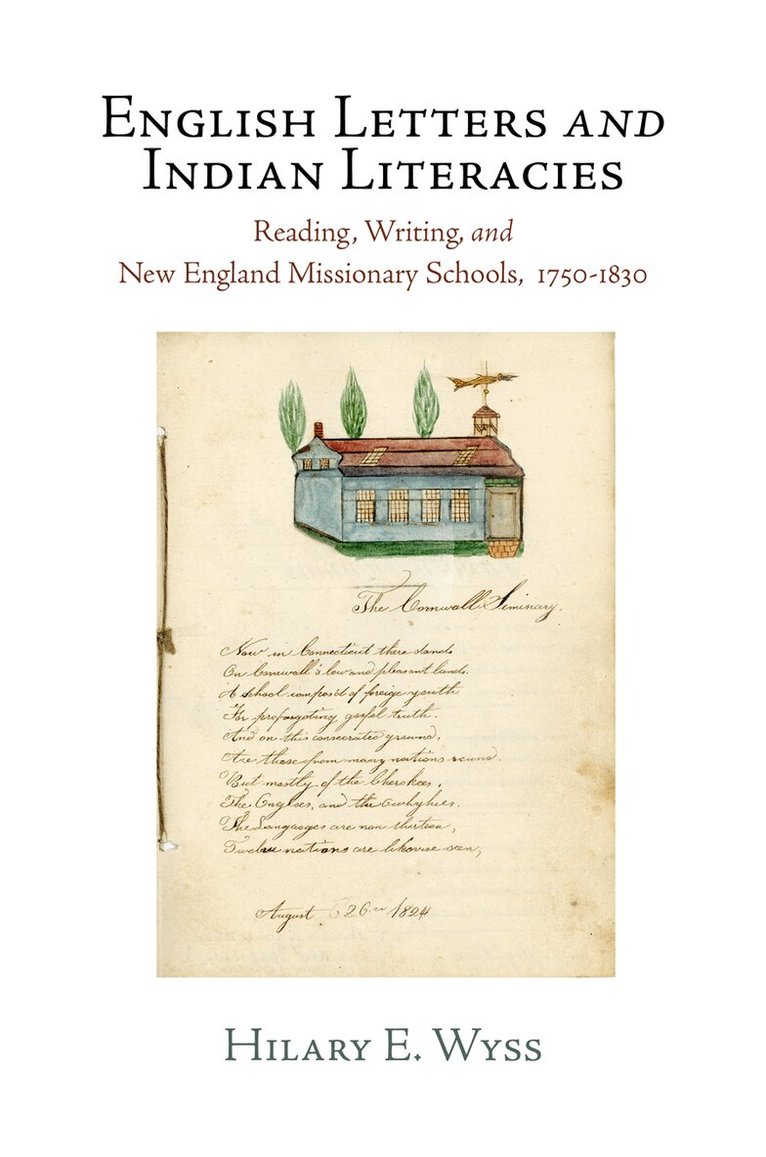 ENGLISH LETTERS AND
INDIAN LITERACIES
Reading, Writing, and
New England Missionary Schools, 1750-1830
The Cornwall Seminary.
Now in Connecticut there stands
On Cornwall's low and pleasant lands.
A school compos'd of foreign youth
For propogating gospel truth.
And on this consecrated ground,
Are those from many nations round.
But mostly of the Cherokees,
The Angloes, and the Owhyhees.
The Languages are now thirteen,
Twelve nations are likewise seen,
August 26th 1824
HILARY E. WYSS